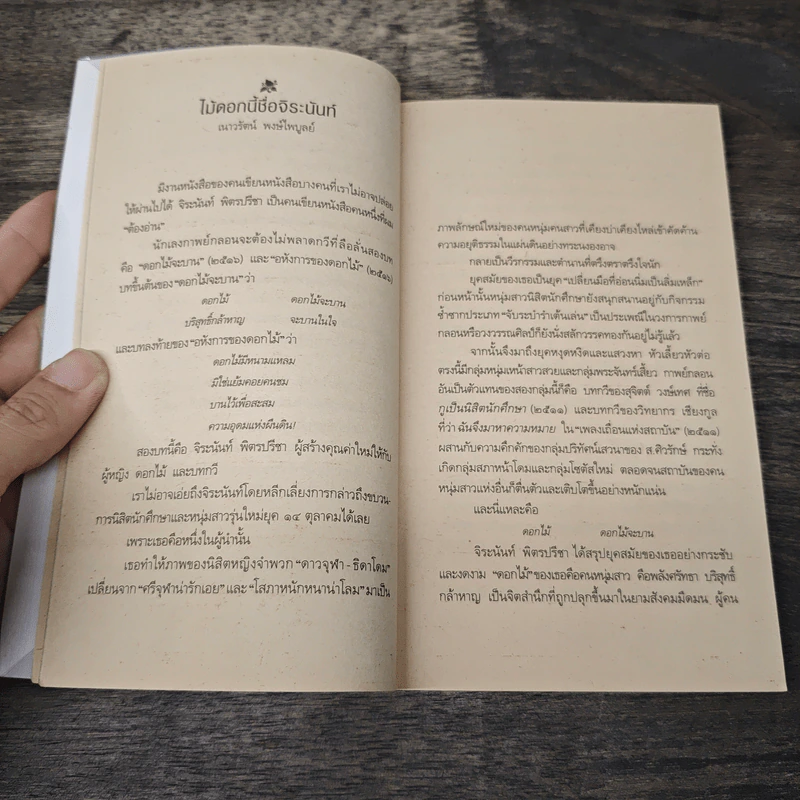 ไม้ดอกนี้ชื่อจิระนันท์
เนาวรัตน์ พงษ์ไพบูลย์
มีงานหนังสือของคนเขียนหนังสือบางคนที่เราไม่อาจปล่อย
ให้ผ่านไปได้ จิระนันท์ พิตรปรีชา เป็นคนเขียนหนังสือคนหนึ่งที่ผม
"ต้องอ่าน"
นักเลงกาพย์กลอนจะต้องไม่พลาดกวีที่ลือลั่นสองบท
คือ "ดอกไม้จะบาน" (๒๕๑๖) และ "อหังการของดอกไม้" (๒๕๑๖)
บทขึ้นต้นของ "ดอกไม้จะบาน" ว่า
ดอกไม้ ดอกไม้จะบาน
บริสุทธิ์กล้าหาญ จะบานในใจ
และบทลงท้ายของ "อหังการของดอกไม้" ว่า
ดอกไม้มีหนามแหลม
มิใช่แย้มคอยคนชม
บานไว้เพื่อสะสม
ความอุดมแห่งผืนดิน!
สองบทนี้คือ จิระนันท์ พิตรปรีชา ผู้สร้างคุณค่าใหม่ให้กับ
ผู้หญิง ดอกไม้ และบทกวี
เราไม่อาจเอ่ยถึงจิระนันท์โดยหลีกเลี่ยงการกล่าวถึงขบวน-
การนิสิตนักศึกษาและหนุ่มสาวรุ่นใหม่ยุค ๑๔ ตุลาคมได้เลย
เพราะเธอคือหนึ่งในผู้นำนั้น
เธอทำให้ภาพของนิสิตหญิงจำพวก "ดาวจุฬา - ธิดาโดม"
เปลี่ยนจาก "ศรีจุฬาน่ารักเอย" และ "โสภาหนักหนาน่าโลม" มาเป็น
ภาพลักษณ์ใหม่ของคนหนุ่มคนสาวที่เคียงบ่าเคียงไหล่เข้าคัดค้าน
ความอยุติธรรมในแผ่นดินอย่างทระนงองอาจ
กลายเป็นวีรกรรมและตำนานที่ตรึงตราตรึงใจนัก
ยุคสมัยของเธอเป็นยุค "เปลี่ยนมือที่อ่อนนิ่มเป็นลิ่มเหล็ก"
ก่อนหน้านั้นหนุ่มสาวนิสิตนักศึกษายังสนุกสนานอยู่กับกิจกรรม
ซ้ำซากประเภท "จับระบำรำเต้นเล่น" เป็นประเพณีในวงการกาพย์
กลอนหรือวงวรรณศิลป์ก็ยังนั่งสลักวรรคทองกันอยู่ไม่รู้แล้ว
จากนั้นจึงมาถึงยุคหงุดหงิดและแสวงหา หัวเลี้ยวหัวต่อ
ตรงนี้มีกลุ่มหนุ่มเหน้าสาวสวยและกลุ่มพระจันทร์เสี้ยว กาพย์กลอน
อันเป็นตัวแทนของสองกลุ่มนี้ก็คือ บทกวีของสุจิตต์ วงษ์เทศ ที่ชื่อ
กูเป็นนิสิตนักศึกษา (๒๕๑๑) และบทกวีของวิทยากร เชียงกูล
ที่ว่า ฉันจึงมาหาความหมาย ใน "เพลงเถื่อนแห่งสถาบัน" (๒๕๑๑)
ผสานกับความคึกคักของกลุ่มปริทัศน์เสวนาของ ส.ศิวรักษ์ กระทั่ง
เกิดกลุ่มสภาหน้าโดมและกลุ่มโซตัสใหม่ ตลอดจนสถาบันของคน
หนุ่มสาวแห่งอื่นก็ตื่นตัวและเติบโตขึ้นอย่างหนักแน่น
และนี่แหละคือ
ดอกไม้ ดอกไม้จะบาน
จิระนันท์ พิตรปรีชา ได้สรุปยุคสมัยของเธออย่างกระชับ
และงดงาม "ดอกไม้" ของเธอคือคนหนุ่มสาว คือพลังศรัทธา บริสุทธิ์
กล้าหาญ เป็นจิตสำนึกที่ถูกปลุกขึ้นมาในยามสังคมมืดมน ผู้คน